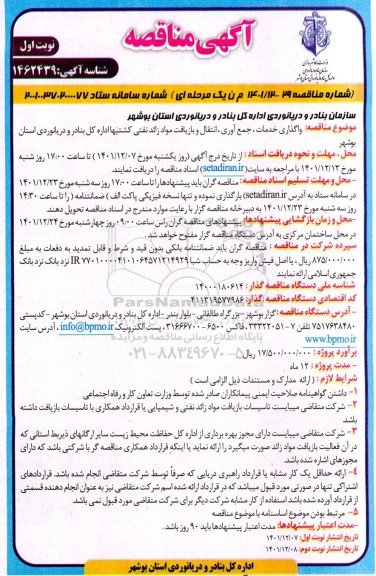 آگهی مناقصه
نوبت اول
شناسه آگهی: ۱۴۶۲۴۳۹
(شماره مناقصه ۲۹ -۱۴۰۱/۱۲ م ن یک مرحله ای) شماره سامانه ستاد ۲۰۰۱۰۰۳۷۰۲۰۰۰۰۷۷
سازمان بنادر و دریانوردی اداره کل بنادر و دریانوردی استان بوشهر
موضوع مناقصه: واگذاری خدمات ، جمع آوری ، انتقال و بازیافت مواد زائد نفتی کشتیها اداره کل بنادر و دریانوردی استان
بوشهر
محل ، مهلت و نحوه دریافت اسناد : از تاریخ درج آگهی (روز یکشنبه مورخ ۱۴۰۱/۱۲/۰۷) تا ساعت ۱۷:۰۰ روز شنبه
مورخ ۱۴۰۱/۱۲/۱۳ با مراجعه به سایت (setadiran.ir) اسناد مناقصه را دریافت نمایند
-محل و مهلت تسلیم اسناد مناقصه: مناقصه گران باید پیشنهادها را تا ساعت ۱۷:۰۰ روز سه شنبه مورخ ۱۴۰۱/۱۲/۲۳
در سامانه ستاد به آدرس (setadiran.ir) بارگذاری نموده و تنها نسخه فیزیکی پاکت الف (ضمانتنامه) را تا ساعت ۱۴:۳۰
روز سه شنبه مورخ ۱۴۰۱/۱۲/۲۳ به دبیرخانه مناقصه گزار با رعایت موارد مندرج در اسناد مناقصه تحویل دهند
-محل و زمان بازگشایی پیشنهادها: پیشنهادهای مناقصه گران راس ساعت ۰۹:۰۰ روز چهارشنبه مورخ ۱۴۰۱/۱۲/۲۴
در محل ساختمان مرکزی به آدرس دستگاه مناقصه گزار مفتوح خواهد شد.
سپرده شرکت در مناقصه : مناقصه گران باید ضمانتنامه بانکی بدون قید و شرط و قابل تمدید به دفعات به مبلغ
۸۷۵/۰۰۰/۰۰۰ ریال ، یا اصل فیش واریز وجه به حساب شبا IR نزد بانک نزد بانک
جمهوری اسلامی ارائه نمایند
شناسه ملی دستگاه مناقصه گذار : ۱۴۰۰۰۱۸۰۶۱۴
کد اقتصادی دستگاه مناقصه گذار: ۴۱۱۳۱۹۵۷۷۹۸۶
- آدرس دستگاه مناقصه گزار: بوشهر -بزرگراه طالقانی - بلوار بندر -اداره کل بنادر و دریانوردی استان بوشهر -کدپستی
۷۵۱۷۶۳۸۴۸۰ تلفن ۷-۳۳۳۲۲۰۵۱ فاکس ۶۵۰۰-۳۱۶۶۶۷۰۰ ، پست الکترونیک info@bpmo.ir ، آدرس سایت
www.bpmo.ir
برآورد پروژه : ۱۷/۵۰۰/۰۰۰/۰۰۰ ریال
- مدت پروژه : ۱۲ ماه
شرایط لازم : ( ارائه مدارک و مستندات ذیل الزامی است )
۱- داشتن گواهینامه صلاحیت ایمنی پیمانکاران صادر شده توسط وزارت تعاون کار و رفاه اجتماعی
۲- شرکت متقاضی میبایست تاسیسات بازیافت مواد زائد نفتی و شیمیایی یا قرارداد همکاری با تاسیسات بازیافت داشته
باشد.
۳- شرکت متقاضی میبایست دارای مجوز بهره برداری از اداره کل حفاظت محیط زیست سایر ارگانهای ذیربط استانی که
در آن فعالیت بازیافت مواد زائد صورت میگیرد را ارائه نماید یا اینکه قرارداد همکاری مناقصه گر با شرکتی باشد که دارای
مجوزهای اشاره شده باشد.
۴- ارائه حداقل یک کار مشابه یا قرارداد راهبری دریایی که صرفاً توسط شرکت متقاضی انجام شده باشد. قراردادهای
اشتراکی تنها در صورتی مورد قبول میباشد که در قرارداد ارائه شده اسم شرکت متقاضی نیز به عنوان انجام دهنده قسمتی
از قرارداد آورده شده باشد استفاده از کار مشابه شرکت دیگر برای شرکت متقاضی مورد قبول نمی باشد
۵- مرتبط بودن موضوع اساسنامه با موضوع مناقصه
-مدت اعتبار پیشنهادها: مدت اعتبار پیشنهادها باید ۹۰ روز باشد.
تاریخ انتشار نوبت اول: ۱۴۰۱/۱۲/۰۷
تاریخ انتشار نوبت دوم: ۱۴۰۱/۱۲/۰۸
اداره کل بنادر و دریانوردی استان بوشهر